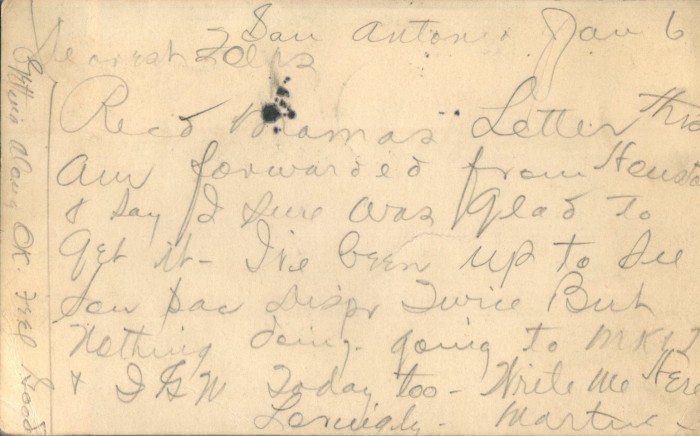 San Antonio Jan 6
Dearest Folks
Recd Mamas Letter this
am forwarded from Housto
& Say I Sure was glad to
get it - I've been up to See
Sou Pac Dispr Twice But
Nothing doing - going to MK&T
& I&GN Today too - Write Me Here
Lovingly - Martin -
Getting along OK. Feel Good